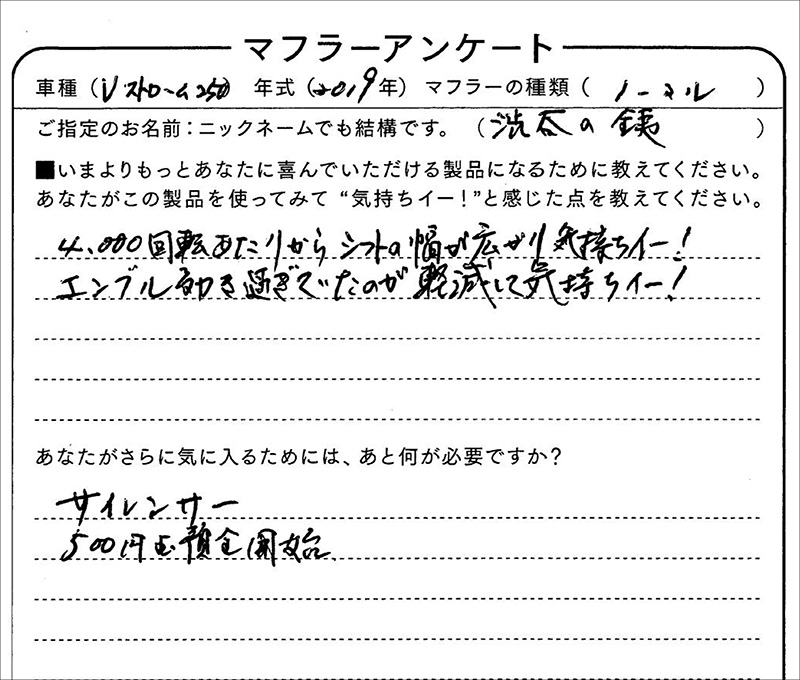 マフラーアンケート
車種（Vストローム250） 年式（2019年） マフラーの種類（ ノーマル ）
ご指定のお名前：ニックネームでも結構です。（渋谷の銕）
■いまよりもっとあなたに喜んでいただける製品になるために教えてください。
あなたがこの製品を使ってみて“気持ちイー！”と感じた点を教えてください。
4,000回転あたりからシフトの幅が広がり気持ちイー！
エンブレ効き過ぎていたのが軽減して気持ちイー！
あなたがさらに気に入るためには、あと何が必要ですか？
サイレンサー
500円玉預金開始